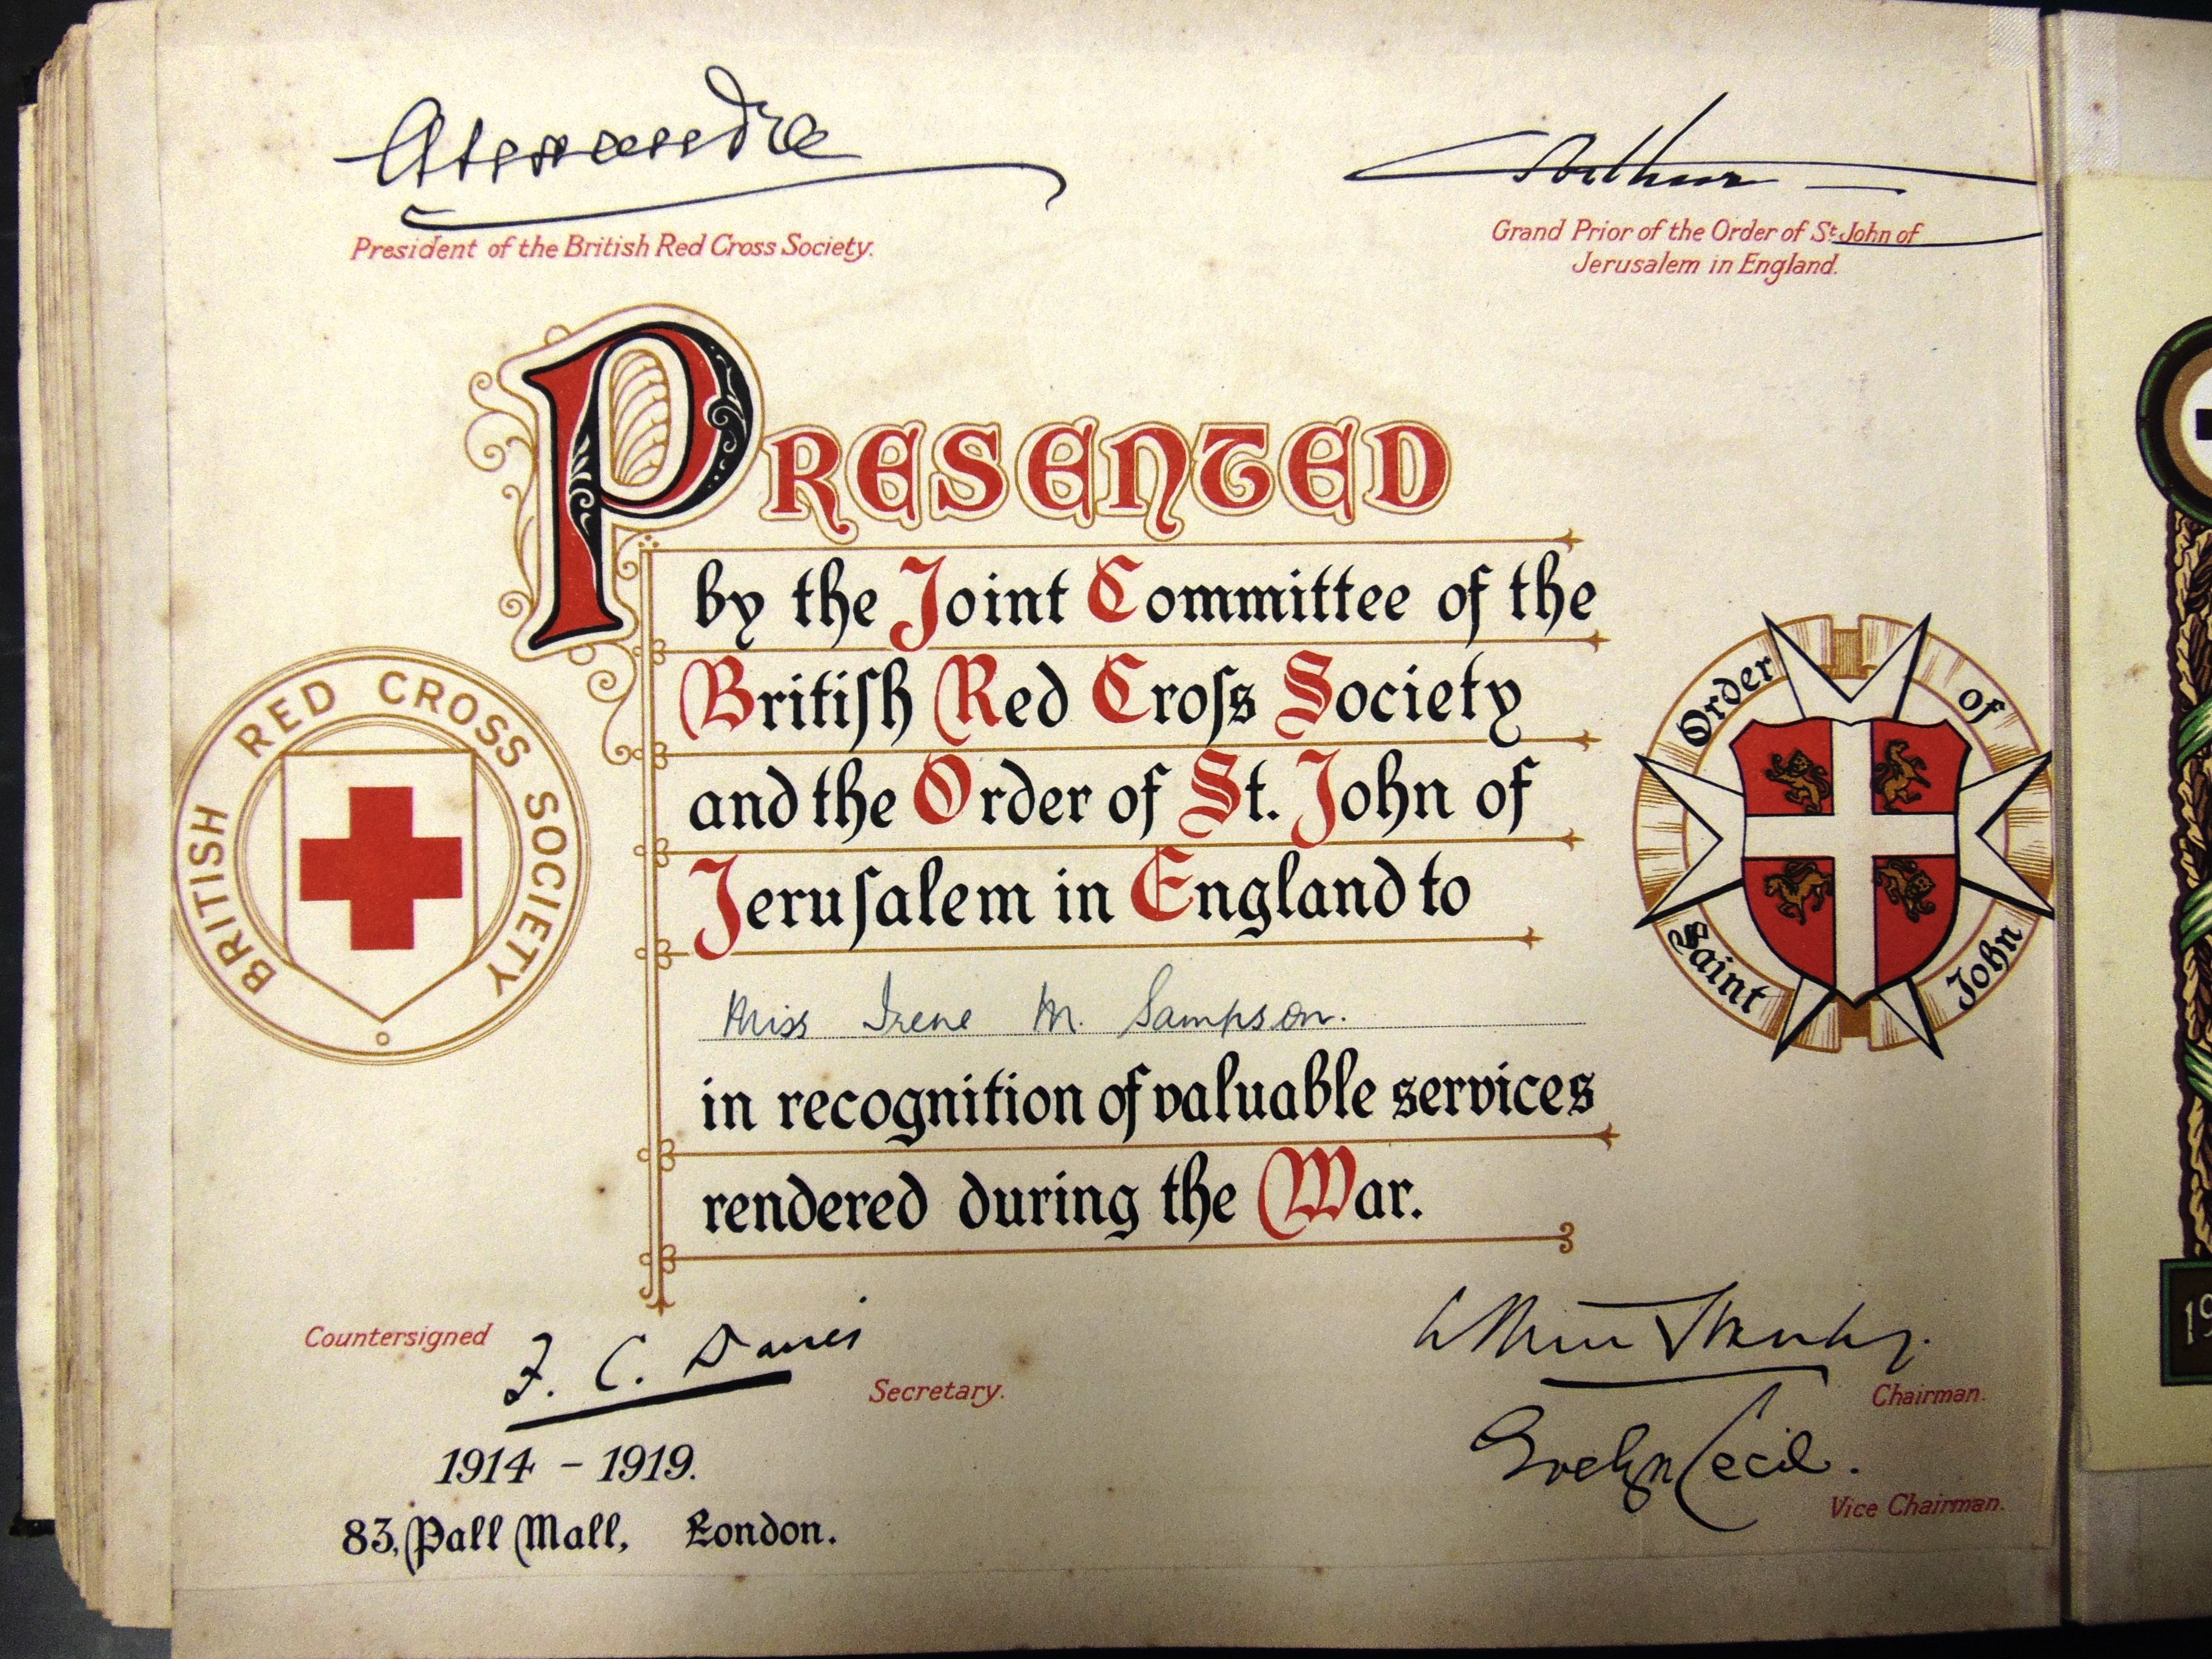 Alexandra
President of the British Red Cross Society.
Arthur
Grand Prior of the Order of St. John of
Jerusalem in England.
PRESENTED
by the Joint Committee of the
Britiſh Red Croſs Society
and the Order of St. John of
Jeruſalem in England to
Miss Irene M. Sampson.
in recognition of valuable services
rendered during the War.
BRITISH RED CROSS SOCIETY
Order of
Saint John
Countersigned
F. C. Davies
Secretary.
1914 - 1919.
83, Pall Mall, London.
Arthur Stanley.
Chairman.
Evelyn Cecil.
Vice Chairman.